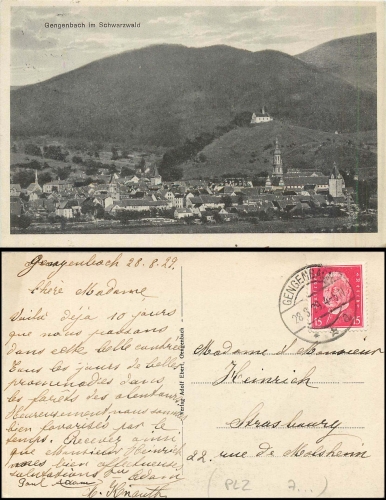 Gengenbach im Schwarzwald
Gengenbach 28.8.29.
Chère Madame,
Voilà déjà 10 jours
que nous passons
dans cette belle contrée
Tous les jours de belles
promenades dans
les forêts des alentours
Heureusement nous sommes
bien favorisés par le
temps. Recevez ainsi
que Monsieur Heinrich
nos bien affectueuses
salutations
Paul Adam
Verlag Adolf
Gengenbach
GENGENBACH
28.8.29
15 15
Madame et Monsieur
Heinrich
Strasbourg
22, rue de Molsheim
(PLZ 7...)